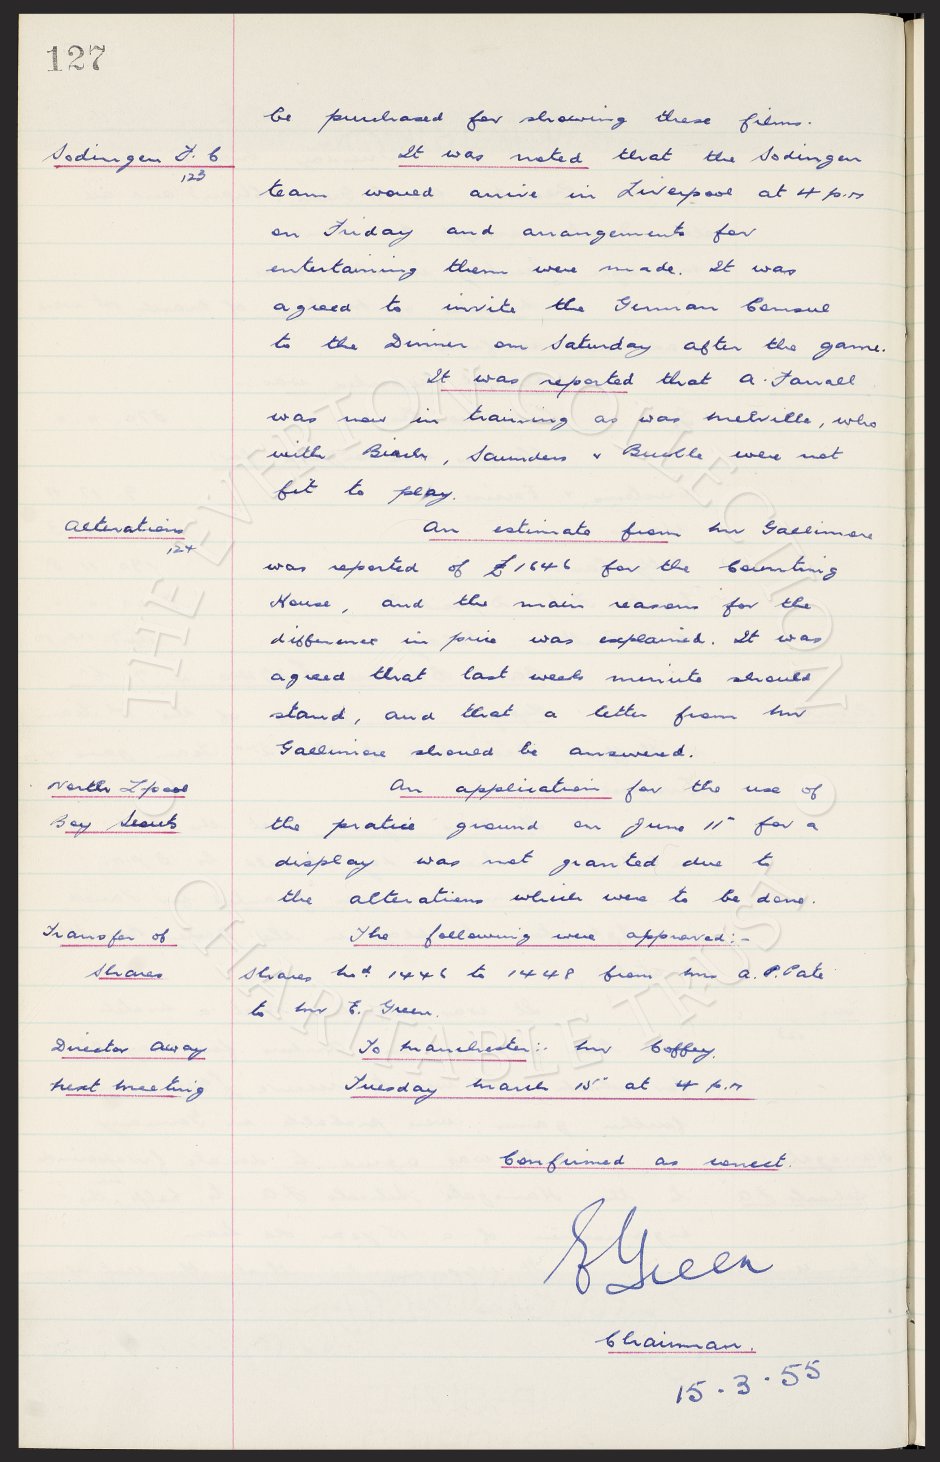 127
be purchased for showing these films.
Sodingen F. C It was noted that the Sodingen
123
team would arrive in Liverpool at 4 p.m
on Friday and arrangements for
entertaining them were made. It was
agreed to invite the German Consul
to the Dinner on Saturday after the game.
It was reported that A. Farrall
was now in training as was Melville, who
with Birch, Saunders & Buckle were not
fit to play.
Alterations An estimate from Mr Gallimore
124
was reported of £1646 for the Counting
House, and the main reasons for the
difference in price was explained. It was
agreed that last weeks minute should
stand, and that a letter from Mr
Gallimore should be answered.
North L'pool An application for the use of
Boy Scouts the pratice ground on June 11 for a
display was not granted due to
the alterations which were to be done.
Transfer of The following were approved:-
Shares Shares Nos. 1446 to 1448 from Mrs A. P. Pate
to Mr E. Green.
Director Away To Manchester:- Mr Coffey.
Next Meeting Tuesday March 15 at 4 p.m
Confirmed as correct.
E Green
Chairman.
15.3.55
THE EVERTON COLLECTION
CHARITABLE TRUST
©